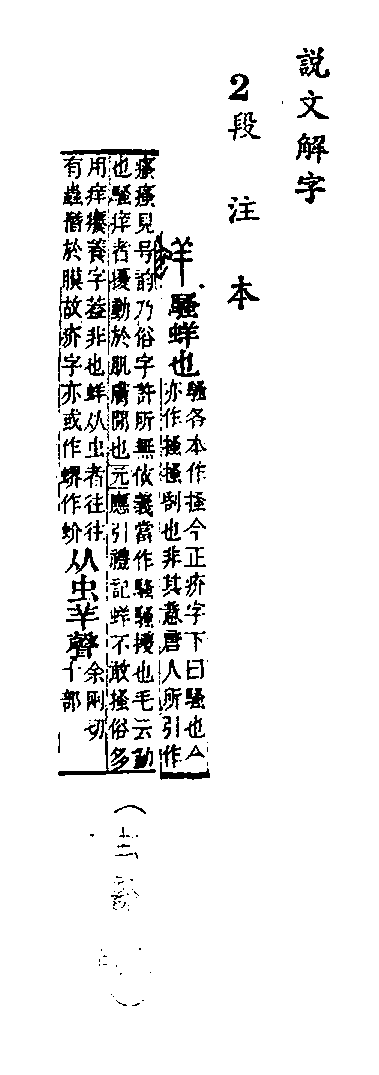 說文解字
2段注本
蛘
騷蛘也
騷各本作搔今正疥字下曰騷也今
亦作搔搔刮也非其意唐人所引作
瘙瘙見号韵乃俗字許所無依義當作騷騷擾也毛云動
也騷痒者擾動於肌膚閒也元應引禮記蛘不敢搔俗多
用痒癢養字葢非也蛘从虫者往往
有蟲潛於膜故疥字亦或作蠏作蚧
从虫羊聲
余兩切
十部